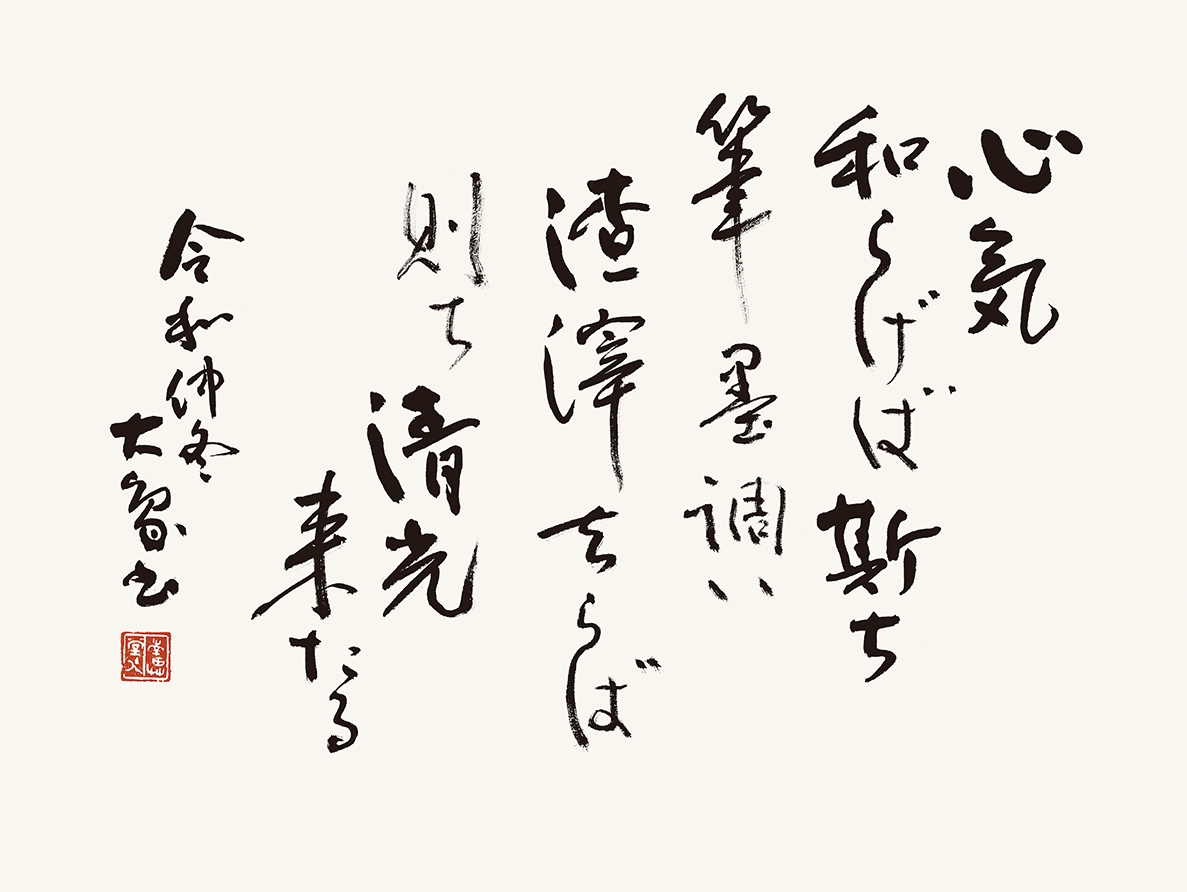 心気
和らげば斯ち
筆墨調い
渣滓去らば
則ち清光
来たる
令和仲冬
大智书